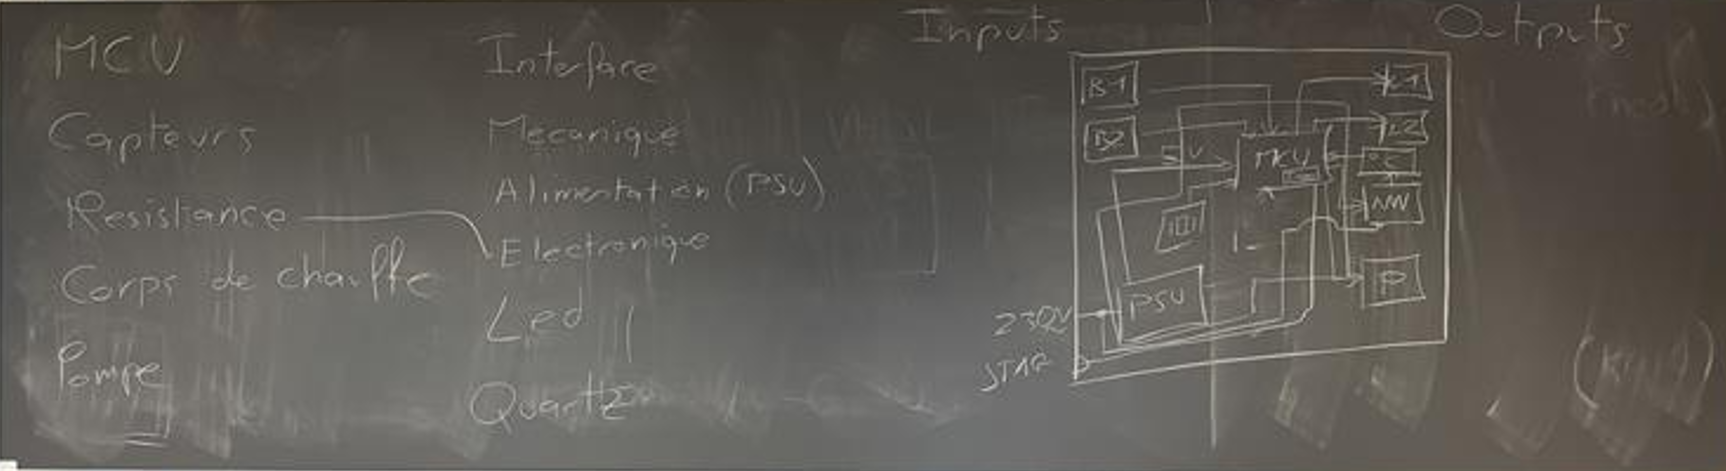 MCU
Capteurs
Resistance
Corps de chauffe
Pompe
Interface
Mecanique
Alimentation (PSU)
Electronique
Led
Quartz
Inputs
Outputs
B1
B2
MCU
L1
L2
°C
PSU
P
230V